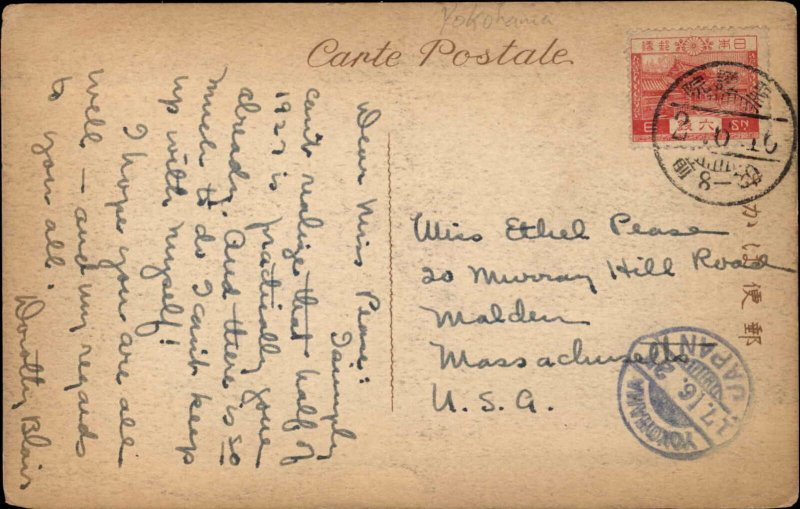 Yokohama
Carte Postale
Dear Miss Pease:
I simply
can't realize that half of
1927 is practically gone
already. And there is so
much to do I can't keep
up with myself!
I hope you are all
well – and my regards
to you all.
Dorothy Blair
Miss Ethel Pease
20 Murray Hill Road
Malden
Massachusetts
U.S.A.
日本郵便
六銭
6 SN
2.6.10
8
郵便はかき
YOKOHAMA
JAPAN